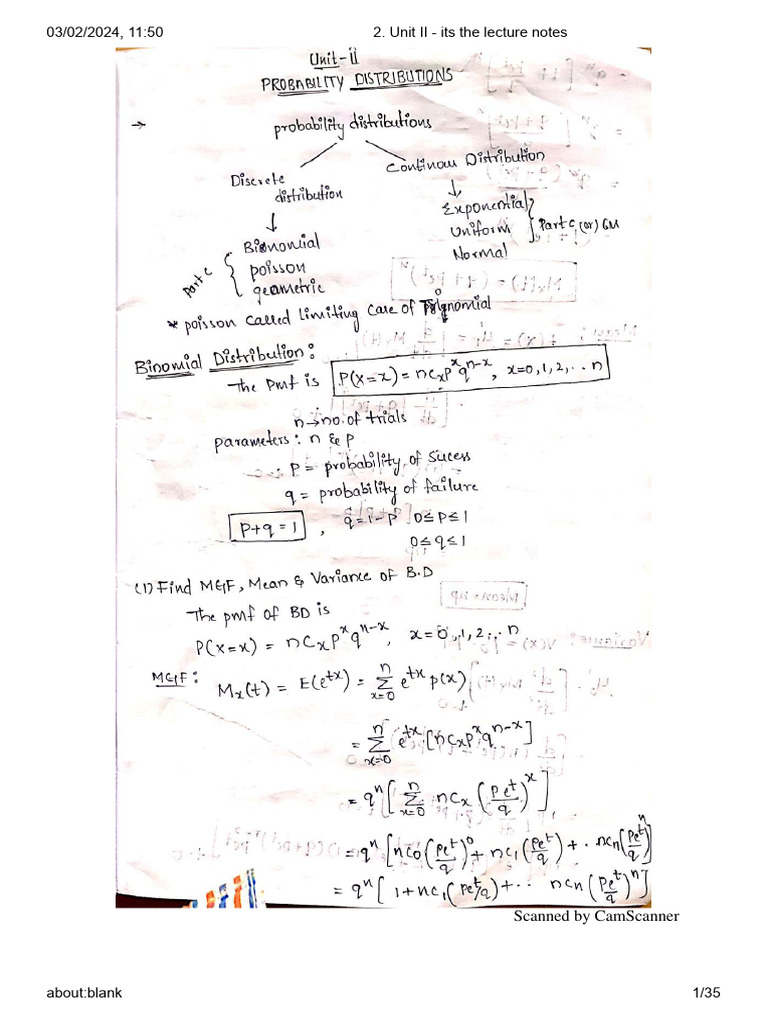 03/02/2024, 11:50 2. Unit II - its the lecture notes
Unit-II
PROBABILITY DISTRIBUTIONS
→ probability distributions
Discrete distribution
Continous Distribution
↓
Binomial
poisson
geometric
Part C
↓
Exponential
Uniform
Normal
Part C (or) 6M
* poisson called limiting case of Binomial
Binomial Distribution:
The pmf is P(X=x) = nCx p^x q^{n-x}, x=0,1,2,.. n
n→no. of trials
parameters: n & p
∴ p = probability of Sucess
q = probability of failure
P+q = 1, q=1-P 0≤P≤1
0≤q≤1
(1) Find MGF, Mean & Variance of B.D
The pmf of BD is
P(X=x) = nCx p^x q^{n-x}, x=0,1,2,.. n
MGF: Mx(t) = E(e^{tx}) = Σ_{x=0}^{n} e^{tx} p(x)
= Σ_{x=0}^{n} e^{tx} [nCx p^x q^{n-x}]
= q^n [Σ_{x=0}^{n} nCx (Pe^t/q)^x]
= q^n [nC0 (pe^t/q)^0 + nC1 (pe^t/q) + .. nCn (pe^t/q)^n]
= q^n [1 + nC1 (pe^t/q) + .. nCn (pe^t/q)^n]
Scanned by CamScanner
about:blank 1/35